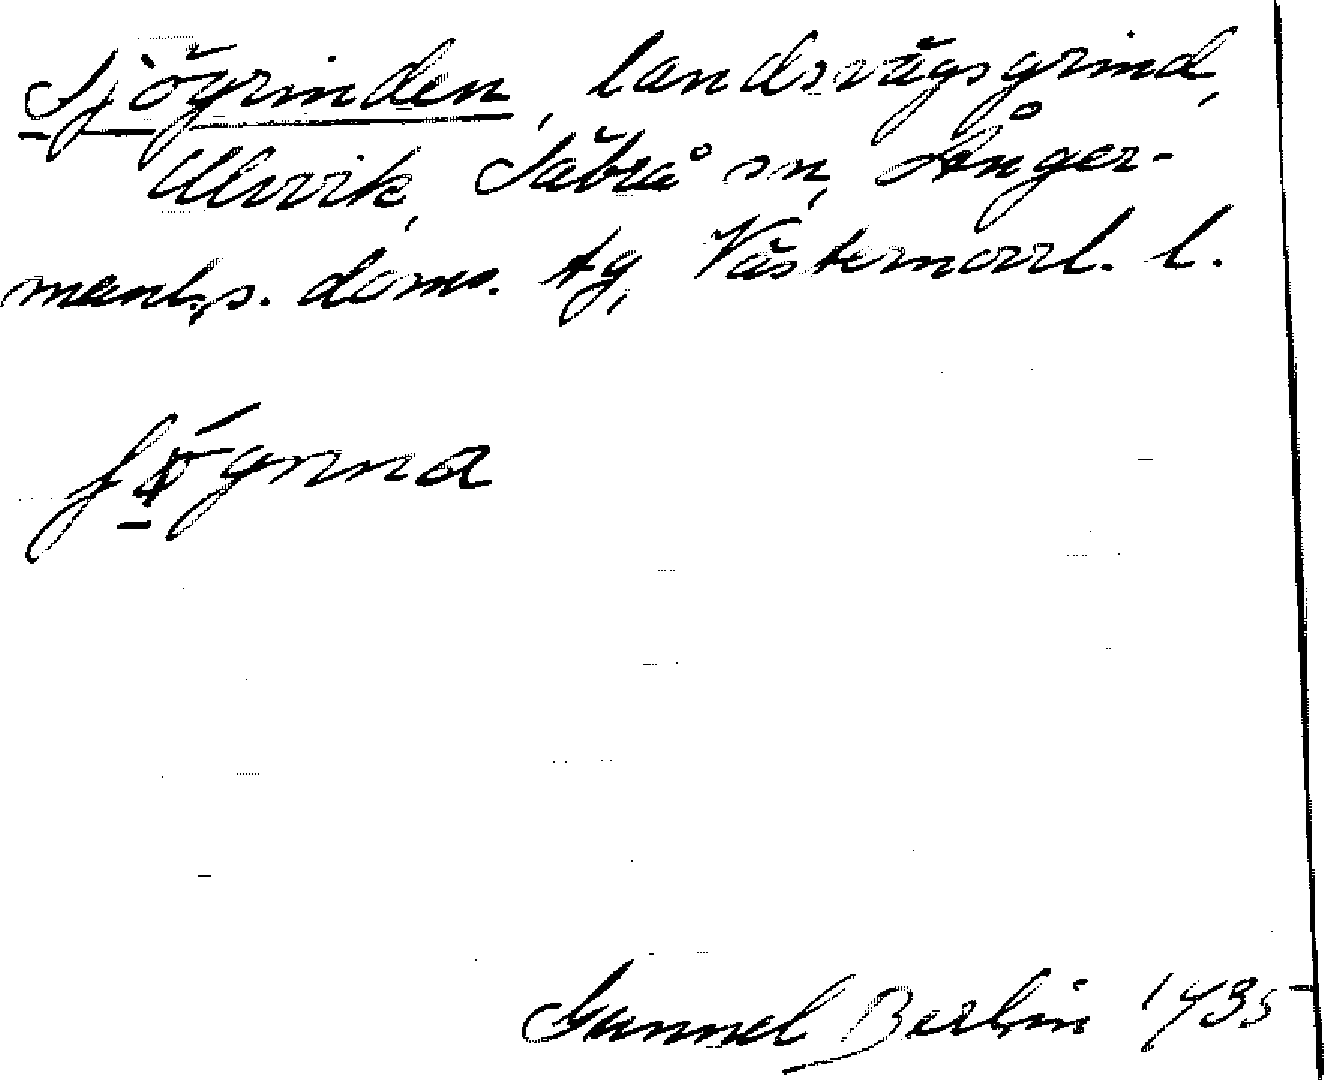 Sjögrinden, landsvägsgrind,
Ulvvik, Säbrå sn, Ånger-
manl:s. doms. tg, Västernorrl. l.
Gunnel Berlin 1935